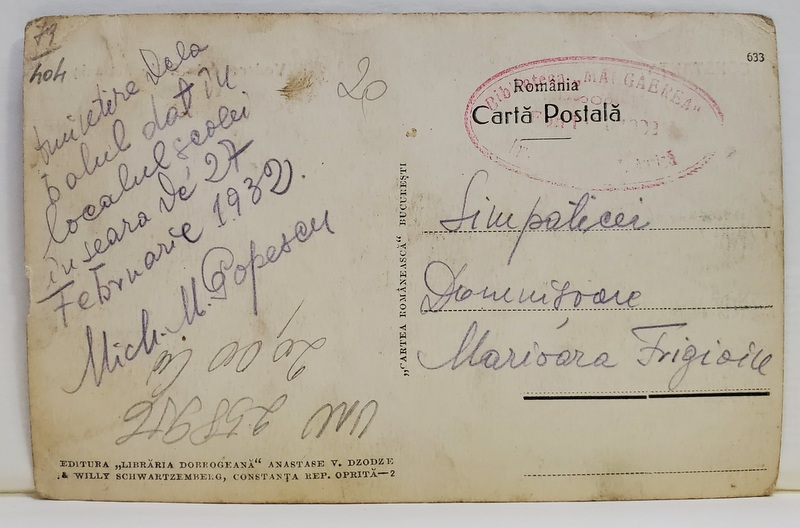 79
404
Amintire dela
balul dat în
localul școlei
în seara de 27
Februarie 1932.
Mich. M. Popescu
20
2000 lei
258956
EDITURA „LIBRĂRIA DOBROGEANĂ“ ANASTASE V. DZODZE
& WILLY SCHWARTZEMBERG, CONSTANȚA REP. OPRITĂ—2
„CARTEA ROMÂNEASCĂ“ BUCUREȘTI
633
Biblioteca „MAI GAEREA“
România
Cartă Postală
Simpaticei
Domnișoare
Marioara